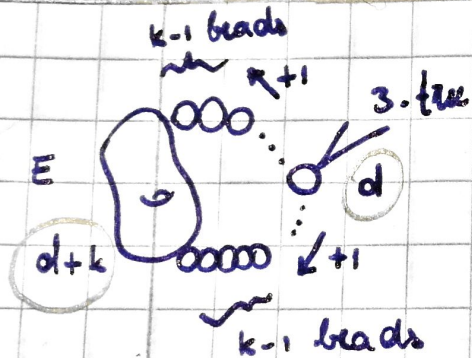 k-1 beads
+1
E
d
d+k
+1
k-1 beads